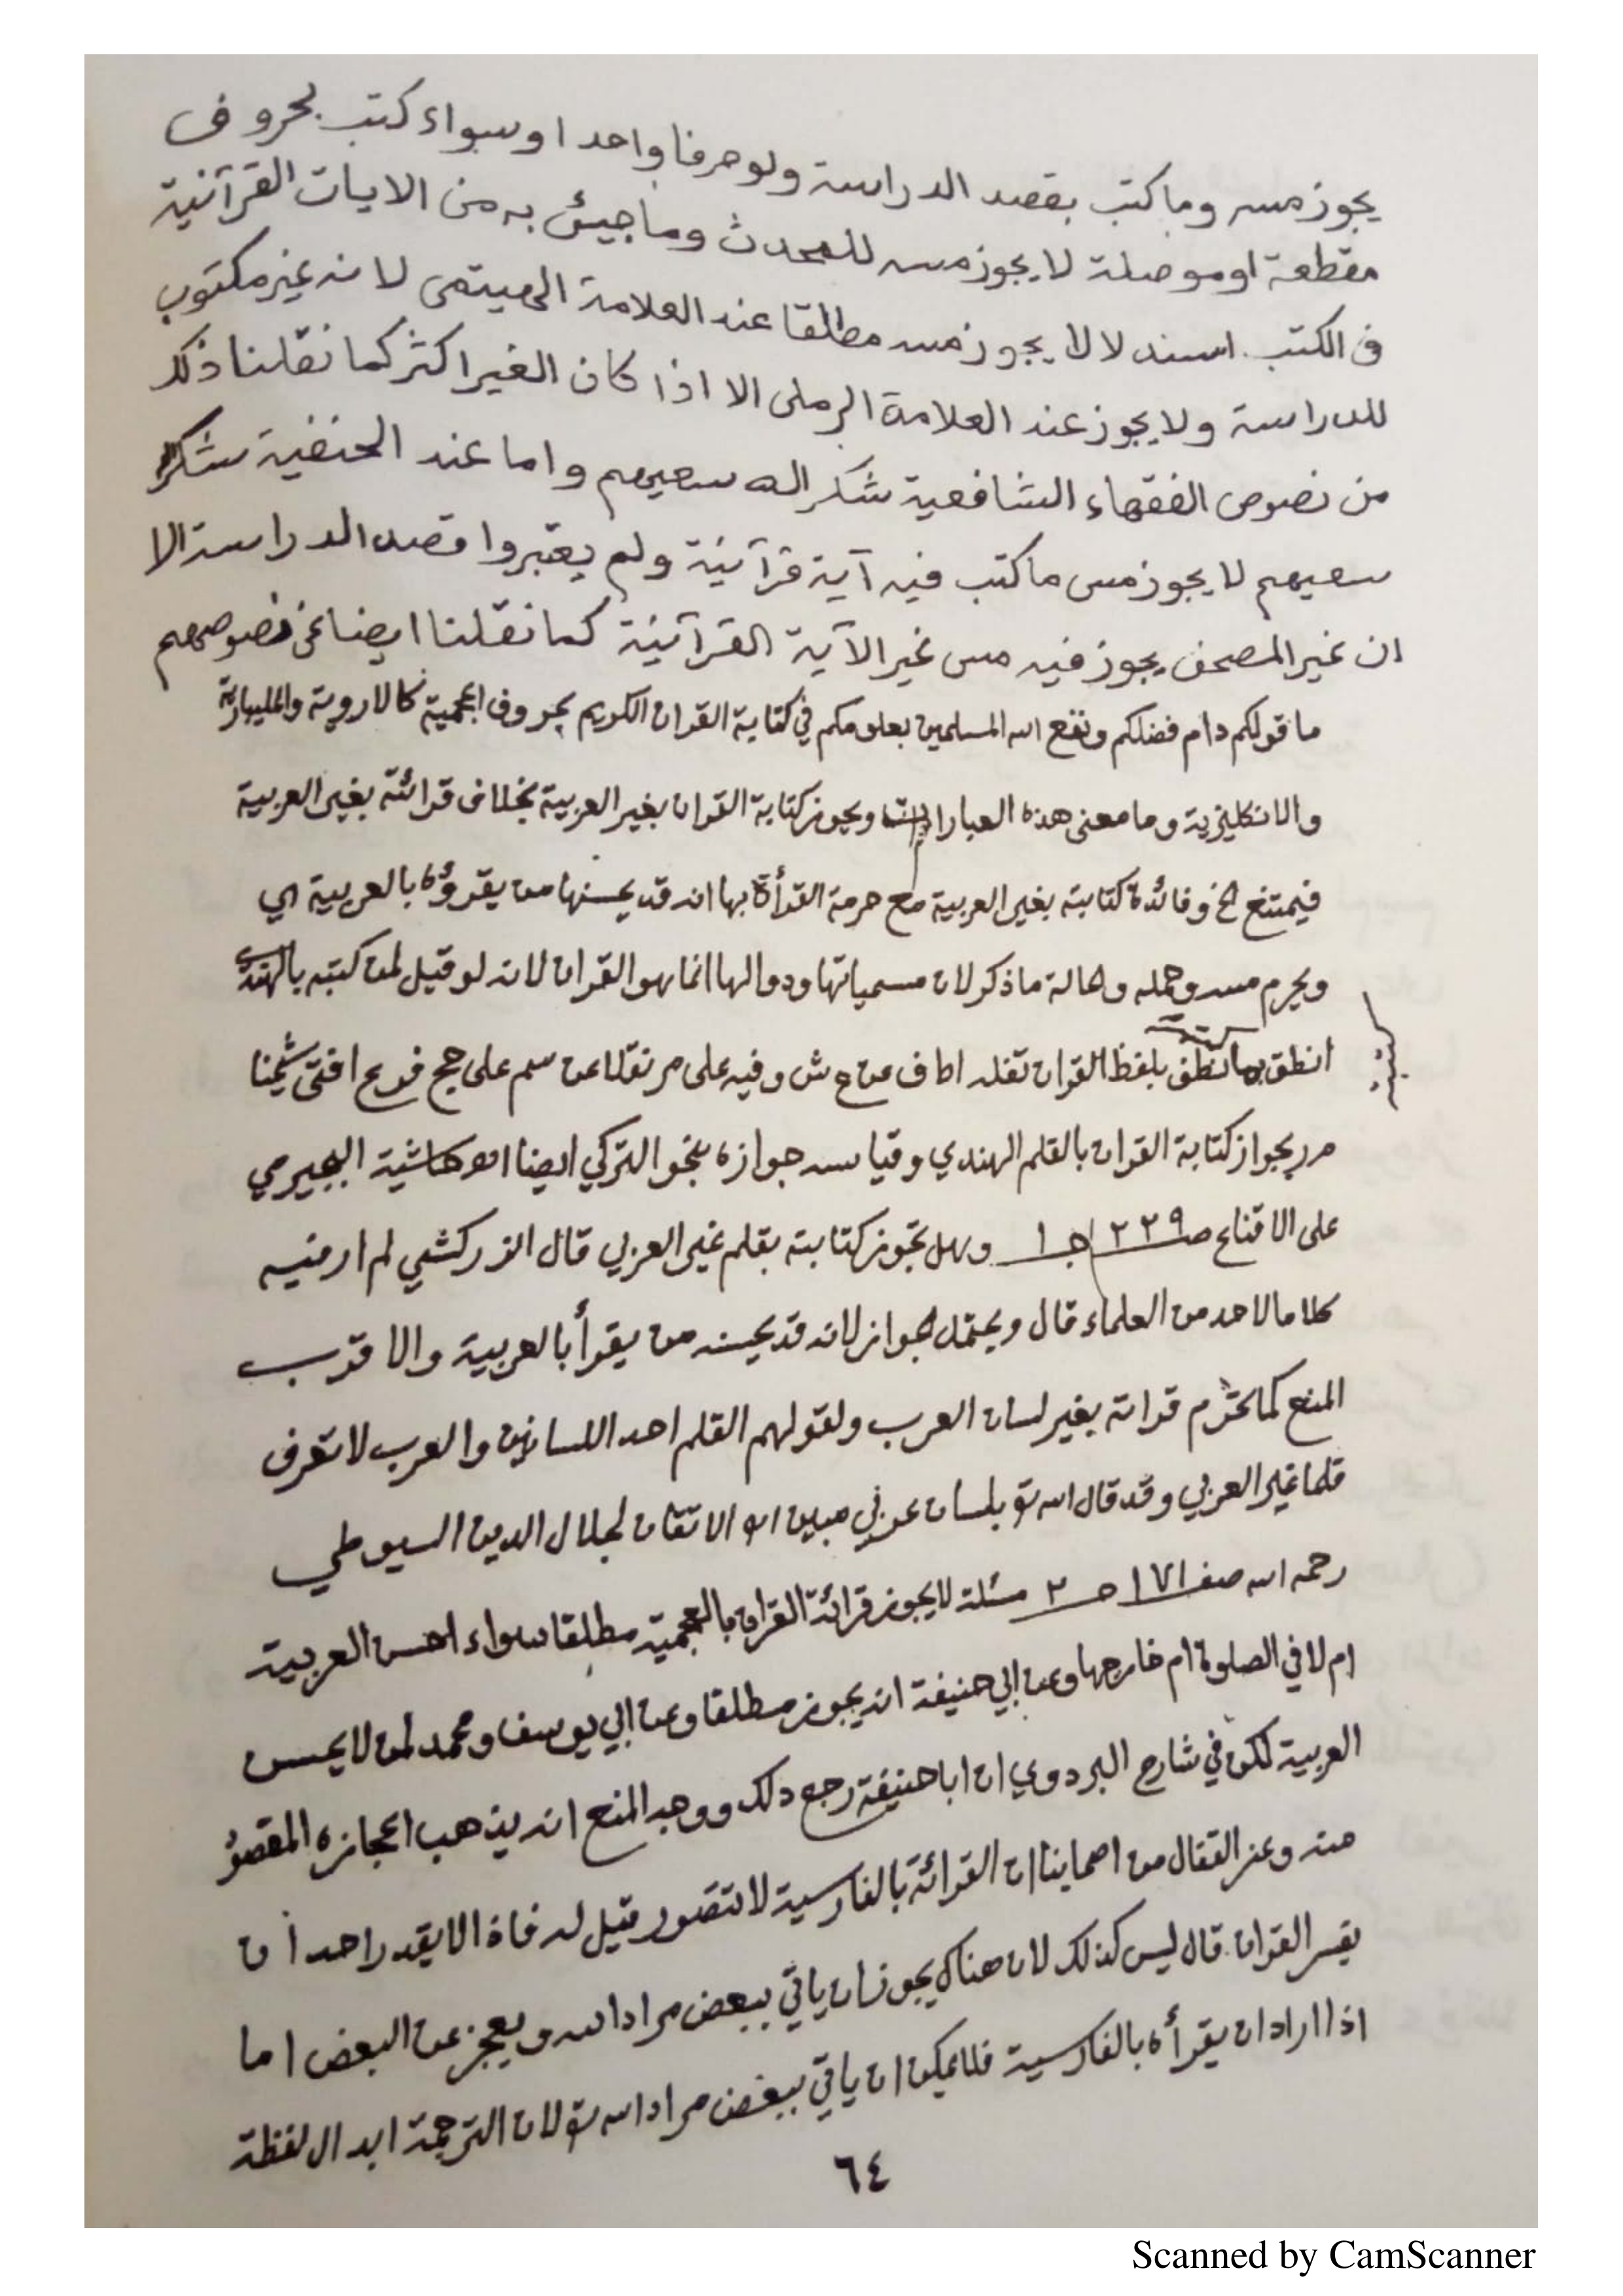 يجوز مسه وما كتب بقصد الدراسة ولو حرفا واحدا وسواء كتب بحروف
مقطعة او موصلة لا يجوز مسه للمحدث وما جيئ به من الايات القرآنية
فى الكتب استدلالا لا يجوز مسه مطلقا عند العلامة الهيتمى لانه غير مكتوب
للدراسة ولا يجوز عند العلامة الرملى الا اذا كان الغير اكثر كما نقلنا ذلك
من نصوص الفقهاء الشافعية شكر الله سعيهم واما عند الحنفية شكر
سعيهم لا يجوز مس ما كتب فيه آية قرآنية ولم يعتبروا قصد الدراسة الا
ان غير المصحف يجوز فيه مس غير الآية القرآنية كما نقلنا ايضا عن نصوصهم
ما قولكم دام فضلكم ونفع الله المسلمين بعلومكم في كتابة القران الكريم بحروف اعجمية كالاروية والمليبارية
والانكليزية وما معنى هذه العبارات ويجوز كتابة القران بغير العربية بخلاف قرائته بغير العربية
فيمتنع الخ وفائدة كتابته بغير العربية مع حرمة القرأة بها انه قد يحسنها من يقرؤه بالعربية اي
ويحرم مسه وحمله وحالة ما ذكر لان مسمياتها ودوالها انما هو القران لانه لو قيل لمن كتبه بالهندي
انطق بما كتبته نطق بلفظ القران نقله اط ف عن ع ش وفيه على مر نقلا عن سم على حج فرع افتى شيخنا
مر بجواز كتابة القران بالقلم الهندي وقياسه جوازه بنحو التركي ايضا اهـ حاشية البجيرمي
على الاقناع صـ ٢٢٩ جـ ١ وهل تجوز كتابته بقلم غير العربي قال الزركشي لم ار فيه
كلاما لاحد من العلماء قال ويحتمل الجواز لانه قد يحسنه من يقرأ بالعربية والاقرب
المنع كما تحرم قراته بغير لسان العرب ولقولهم القلم احد اللسانين والعرب لا تعرف
قلما غير العربي وقد قال الله تع بلسان عربي مبين اهـ الاتقان لجلال الدين السيوطي
رحمه الله صفـ ١٧١ جـ ٢ مسئلة لا يجوز قرائة القران بالعجمية مطلقا سواء احسن العربية
ام لا في الصلوة ام خارجها وعن ابي حنيفة انه يجوز مطلقا وعن ابي يوسف ومحمد لمن لا يحسن
العربية لكن في شارح البزدوي ان ابا حنيفة رجع ذلك ووجه المنع انه يذهب اعجازه المقصود
منه وعن القفال من اصحابنا ان القرائة بالفارسية لا تتصور قيل له فاذا لا يقدر احد ان
يفسر القران قال ليس كذلك لان هناك يجوز ان ياتي ببعض مراد الله ويعجز عن البعض اما
اذا اراد ان يقرأه بالفارسية فلا يمكن ان ياتي ببعض مراد الله تع لان الترجمة ابدال لفظة
٦٤
Scanned by CamScanner